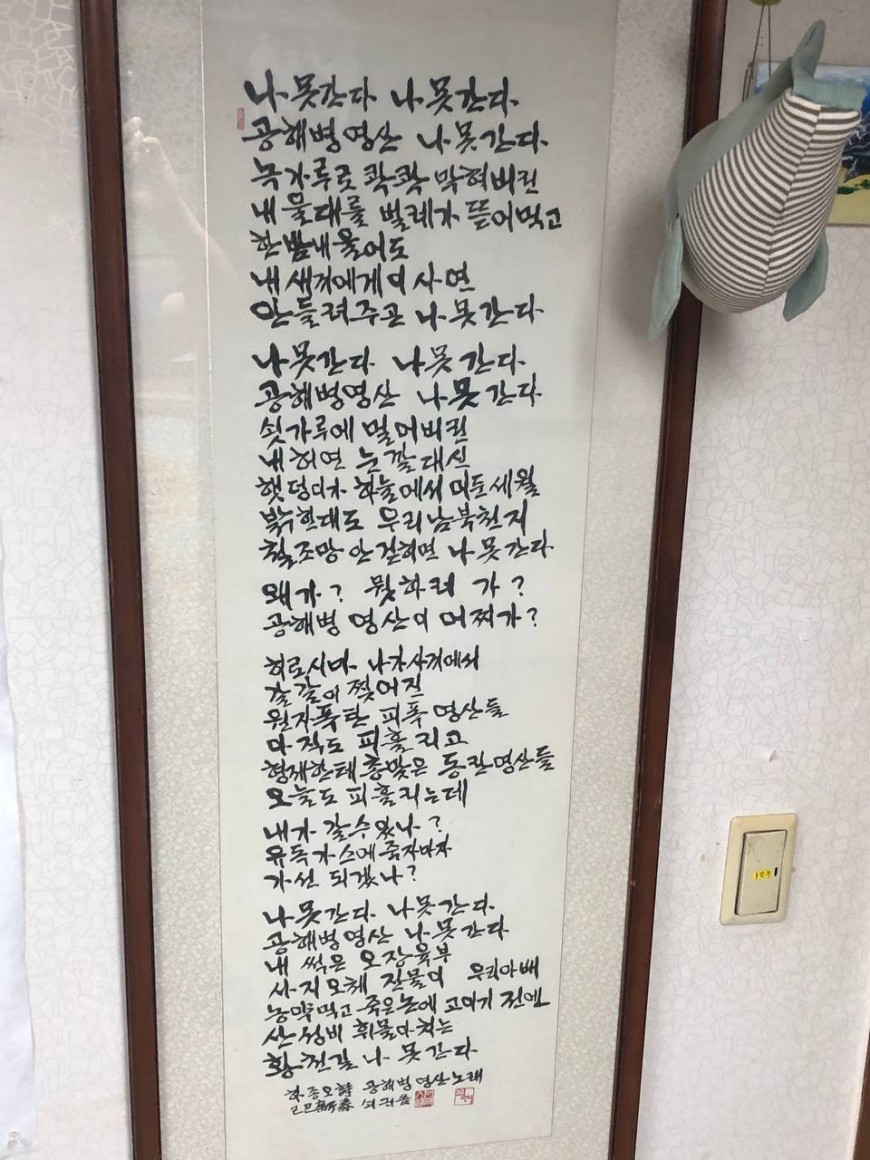 나 못간다 나 못간다
공해병영산 나 못간다
녹가루로 콱콱 막혀버린
내 울대를 벌레가 뜯어먹고
한밤내 울어도
내 새끼에게 이 사연
안들려주곤 나 못간다
나 못간다 나 못간다
공해병영산 나 못간다
쇳가루에 멀어버린
내 허연 눈깔 대신
햇덩이가 하늘에서 미둔 세월
밝힌대도 우리 남북천지
철조망 안 걷히면 나 못간다
왜 가? 뭣하러 가?
공해병 영산이 어찌 가?
히로시마 나가사끼에서
갈갈이 찢어진
원자폭탄 피폭 영산들
아직도 피흘리고
형제한테 총맞은 동란영산들
오늘도 피 흘리는데
내가 갈수있나?
유독가스에 죽자마자
가선 되겠나?
나 못간다 나 못간다
공해병영산 나 못간다
내 썩은 오장육부
사지오체 진물이 우리아배
농약먹고 죽은 논에 고이기 전엔
산성비 휘몰아쳐는
황천길 나 못간다
하종오 詩 공해병 영산노래
己巳 新春